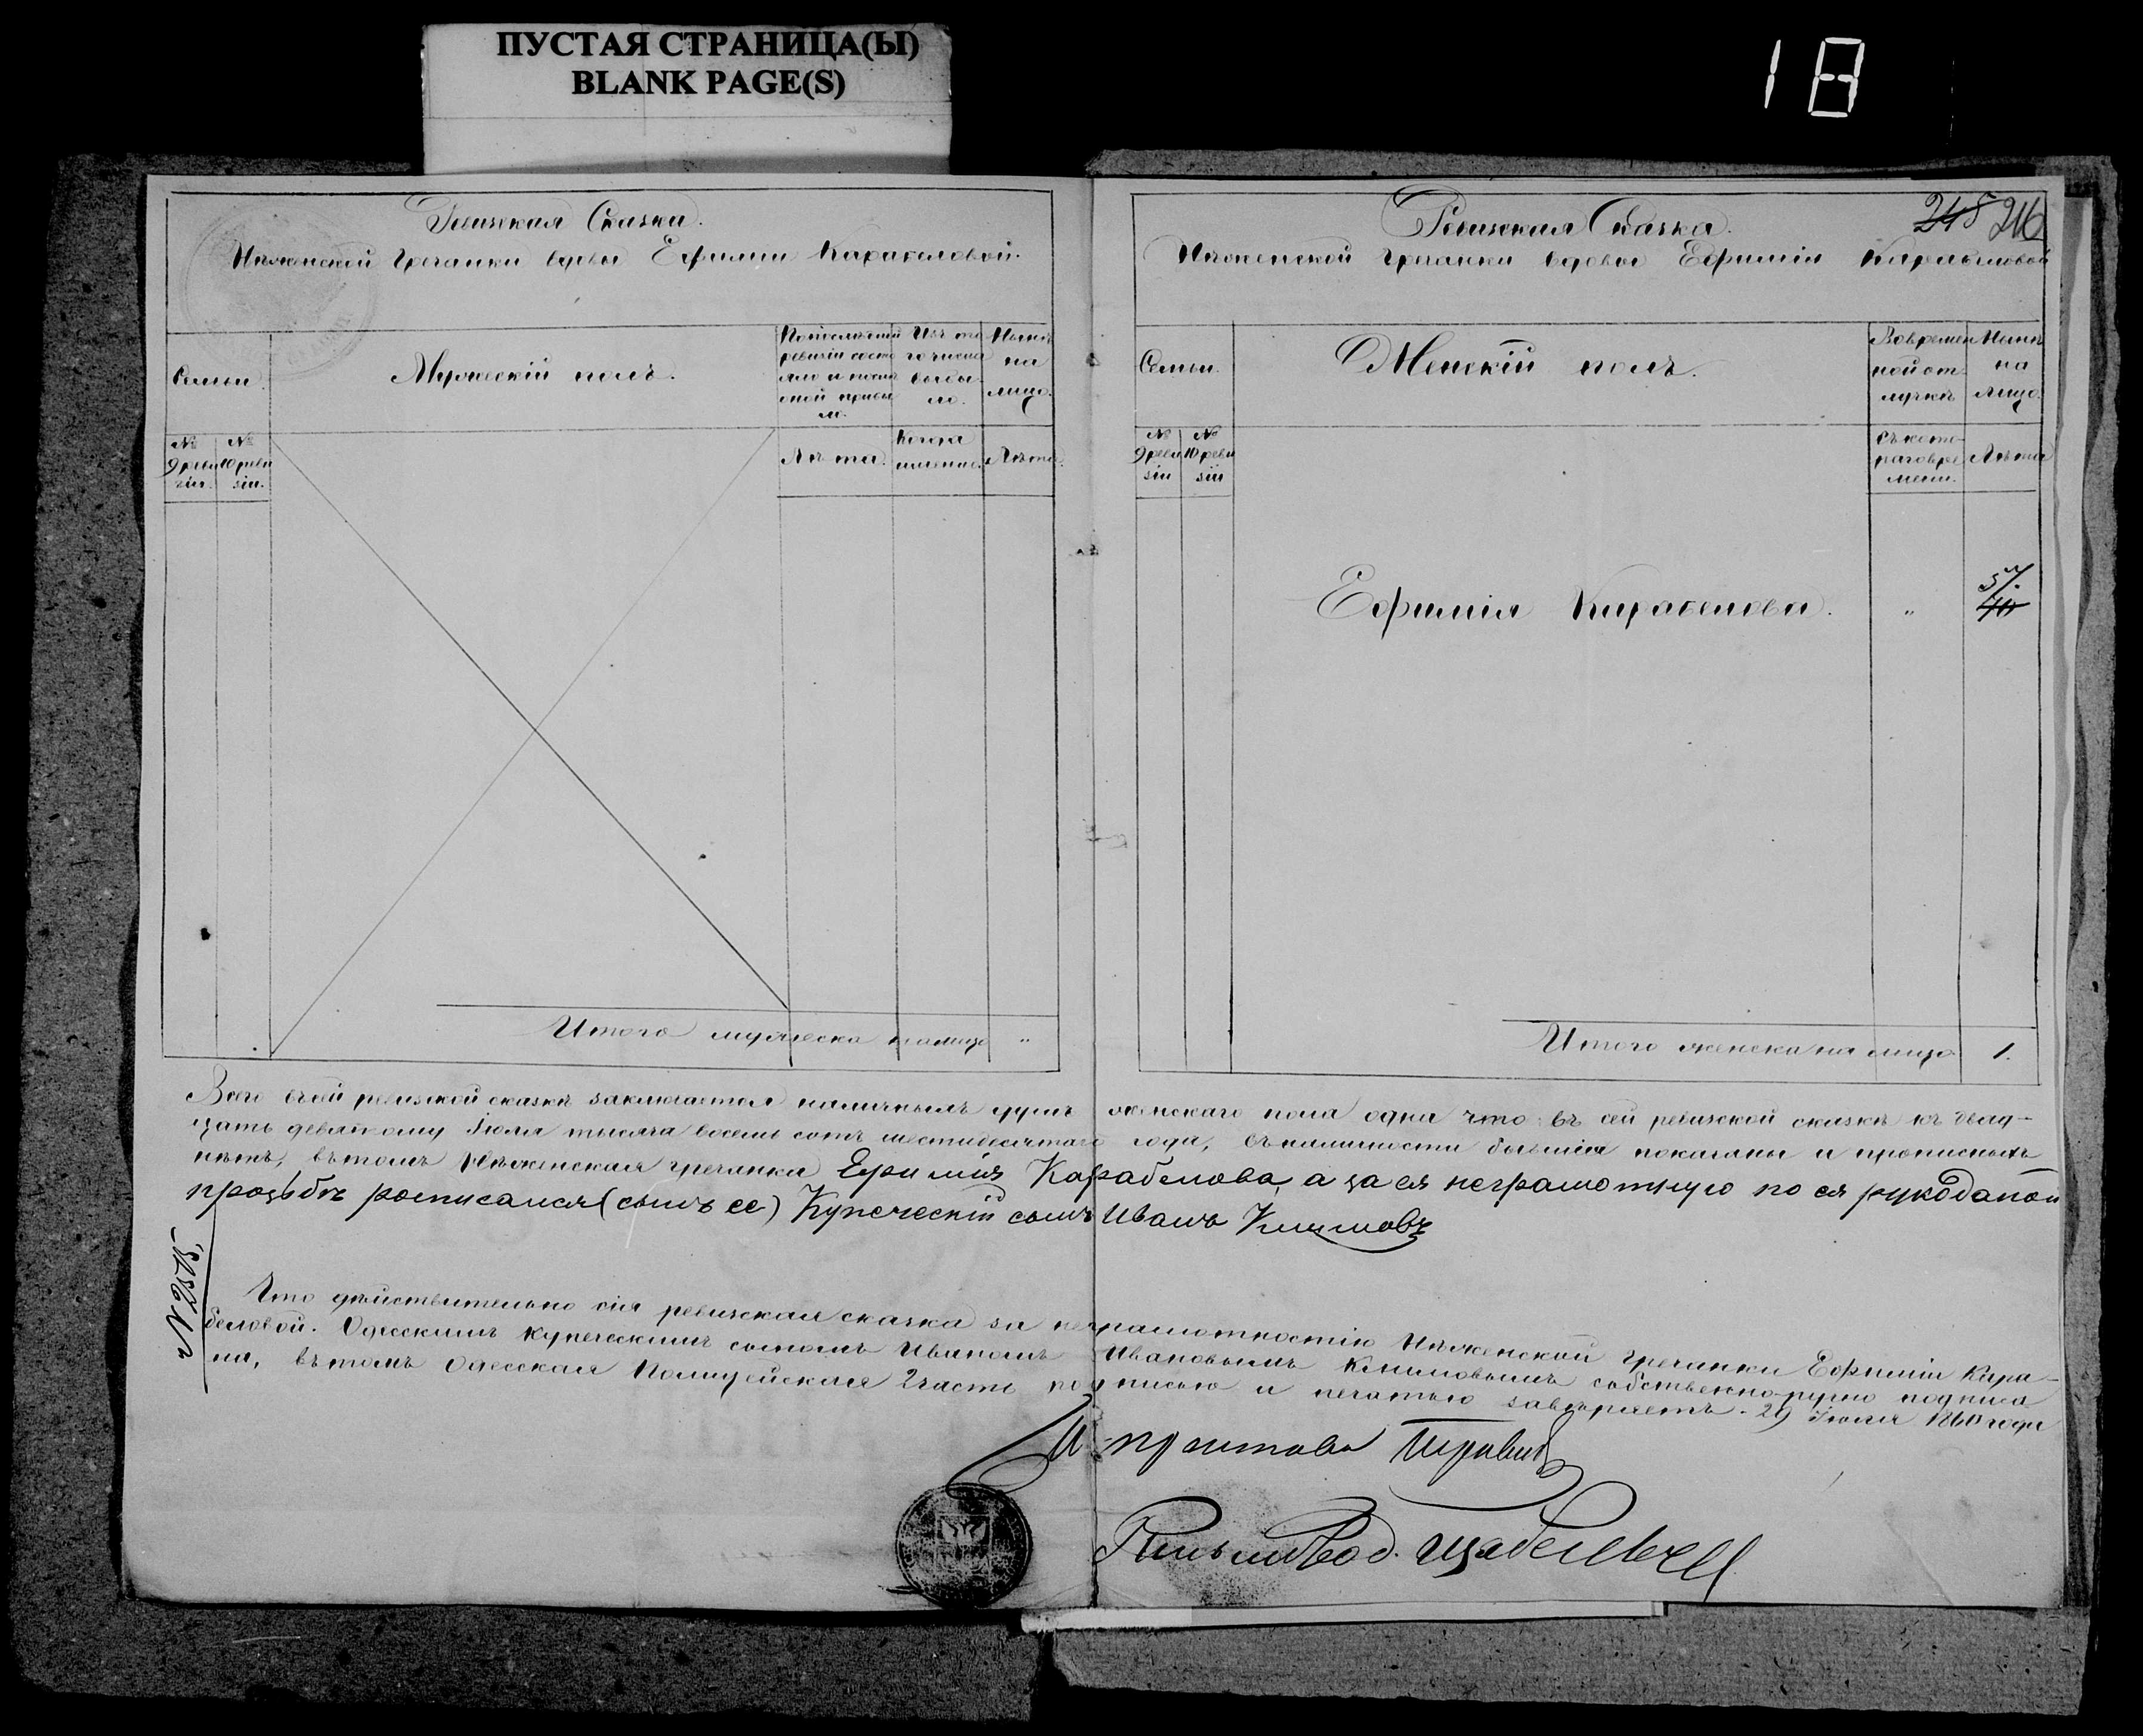 ПУСТАЯ СТРАНИЦА(Ы)
BLANK PAGE(S)
18
Ревизская Сказка.
Нѣженской гречанки вдовы Ефимии Карабеловой.
Семьи.
Мужескій полъ.
По последней
ревизіи состо
яло и после
оной прибы
ло.
Изъ то
го числа
выбы
ло.
Нынѣ
на
лицо.
№
9 реви
зіи.
№
10 реви
зіи.
Лѣта.
Когда
именно.
Лѣта.
Итого мужеска на лицо "
Ревизская Сказка.
245 246
Нѣженской гречанки вдовы Ефимии Карабеловой
Семьи.
Женскій полъ.
Во времен
ной от
лучкѣ
Нынѣ
на
лицо.
№
9 реви
зіи
№
10 реви
зіи
Съ кото
раго вре
мени.
Лѣта
Ефимія Карабелова. "
57.
40
Итого женска на лицо 1.
Всего въ сей ревизской сказкѣ заключается наличныхъ душъ женскаго пола одна что въ сей ревизской сказкѣ къ двад-
цать девятому Іюля тысяча восемь сотъ шестидесятаго года, въ наличности бывшія показаны и прописныхъ
нѣтъ, въ томъ Нѣженская гречанка Ефимія Карабелова, а за ея неграмотную по ея рукоданой
прозьбѣ росписался (сынъ ее) Купеческій сынъ Иванъ Климовъ
Что дѣйствительно сія ревизская сказка за неграмотностію Нѣженской гречанки Ефиміи Кара-
беловой. Одесскимъ купеческимъ сыномъ Иваномъ Ивановымъ Климовымъ собственноручно подписа
на, въ томъ Одесская Полицейская 2 часть подписью и печатью завѣряетъ. 29 Іюля 1860 года
№
И. пристава
Письмовод.